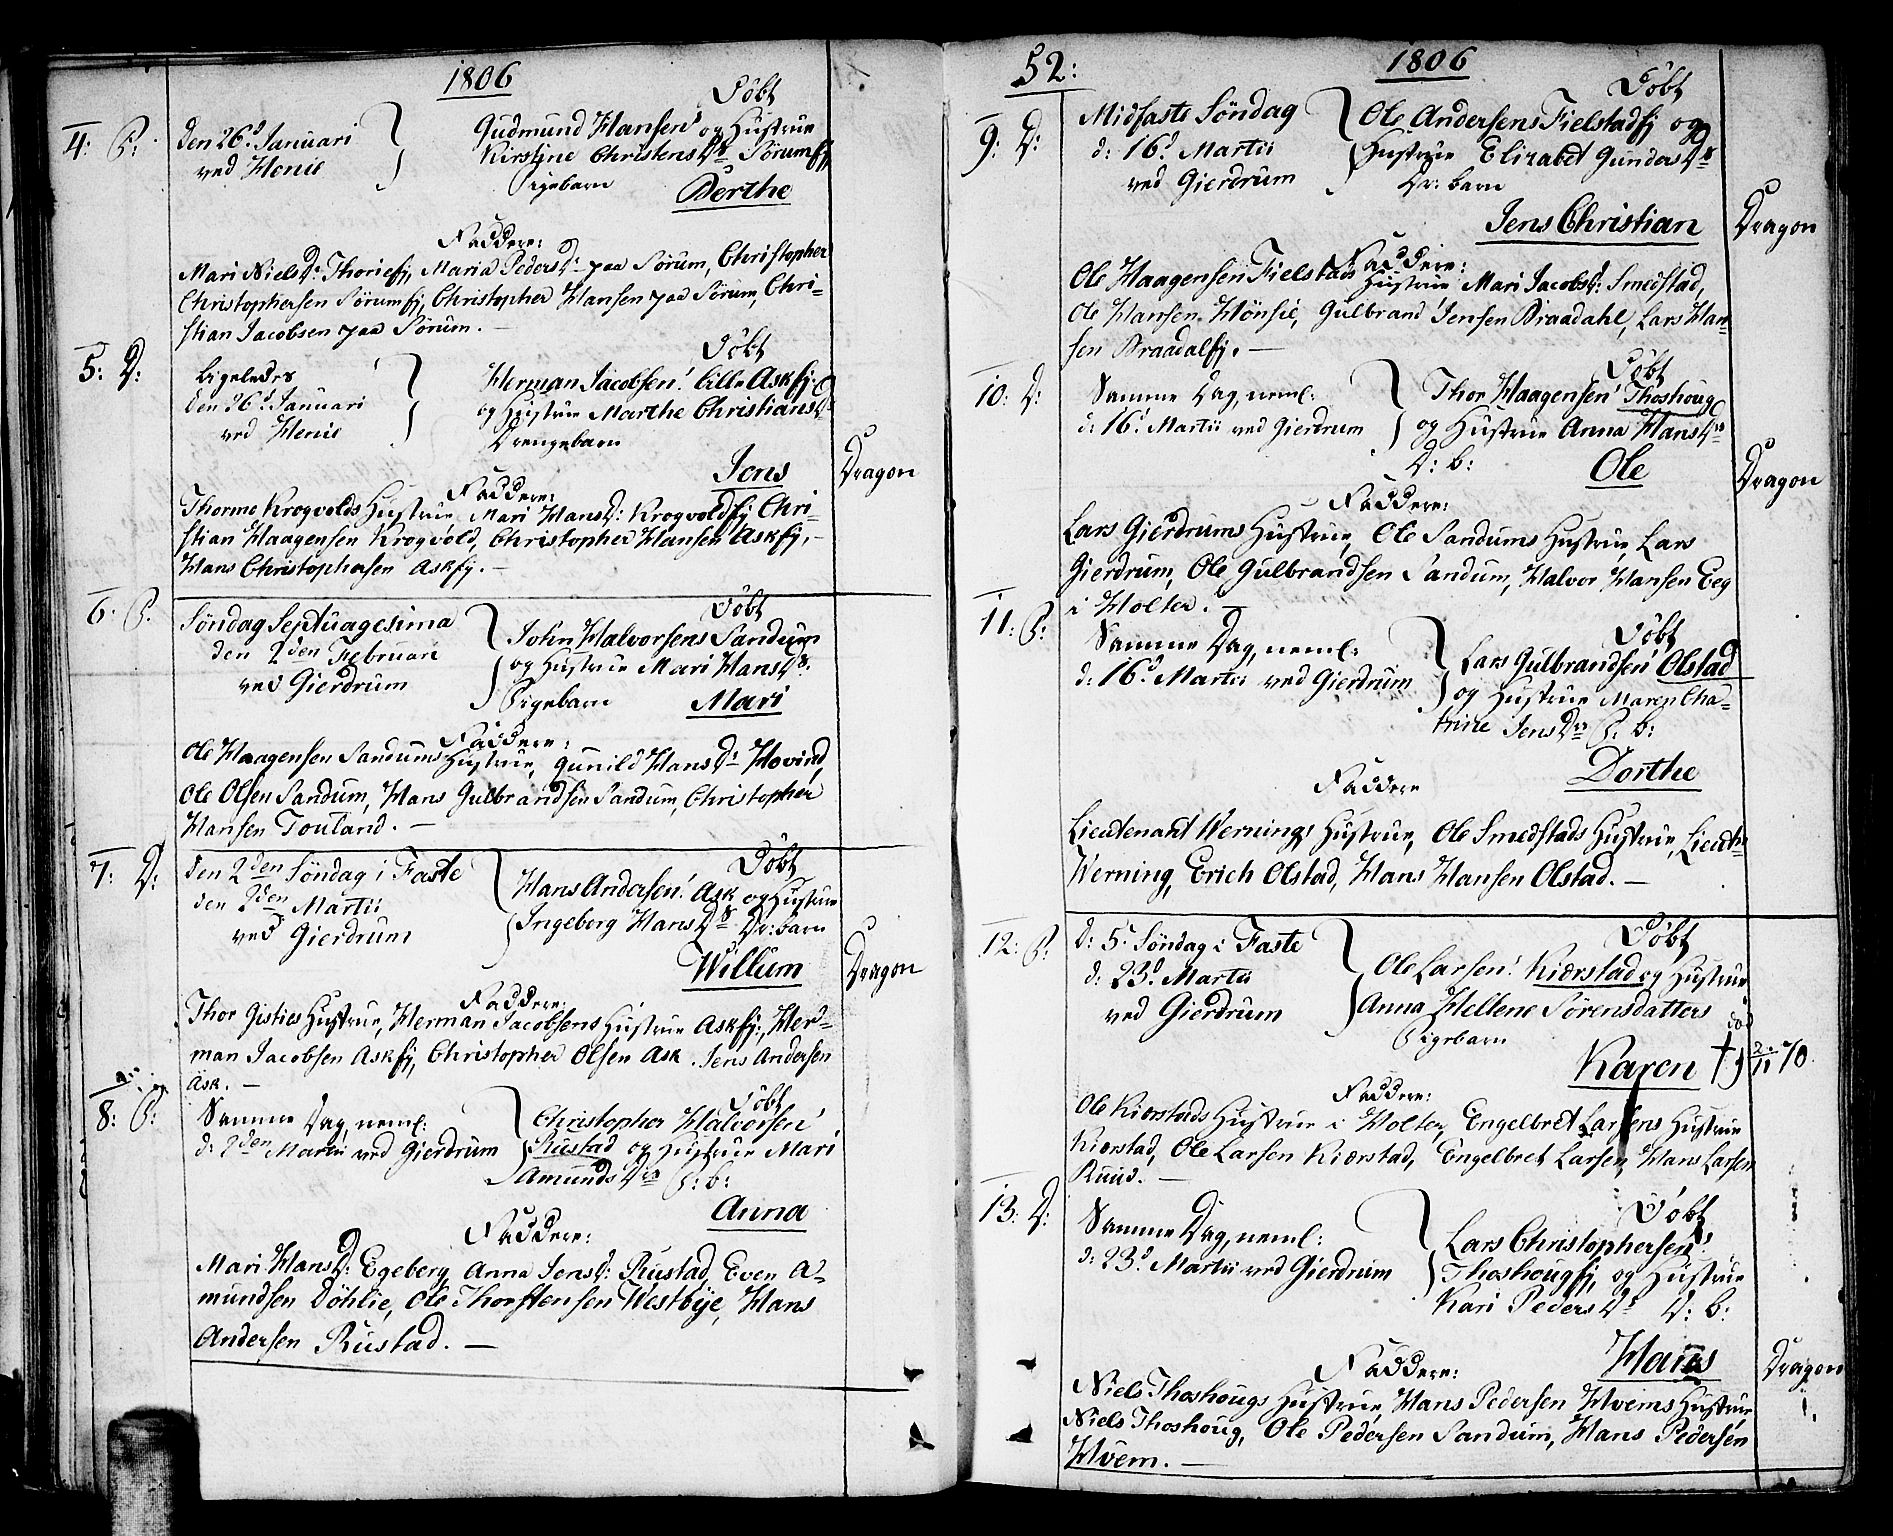 1806
Döbt
4: P:
den 26d Januari
ved Henie
Gudmund Hansens og Hustrue
Kirstine Christens Dr Sörumsej
Pigebarn Berthe
Faddere:
Mari Niels Dr Thoriesej, Maria Peders Dr paa Sörum, Christopher
Christophersen Sörumsej, Christopher Hansen paa Sörum, Chri-
stian Jacobsen paa Sörum. —
5: D:
Döbt
Ligeledes
den 26d Januari
ved Henie
Herman Jacobsens lille Askej
og Hustrue Marthe Christians Dr
Drengebarn
Jens
Dragon
Faddere:
Thormo Krogvolds Hustrue, Mari Hans D: Krogvoldsej, Chri-
stian Haagensen Krogvold, Christopher Hansen Askej, —
Hans Christophersen Askej. —
6: P:
Döbt
Söndag Septuagesima
den 2den Februari
ved Gierdrum
John Halvorsens Sandum
og Hustrue Mari Hans Dr:
Pigebarn Mari
Faddere:
Ole Haagensen Sandums Hustrue, Gunild Hans Dr Hovind,
Ole Olsen Sandum, Hans Gulbrandsen Sandum, Christopher
Hansen Touland. —
7: D:
Döbt
den 2den Söndag i Faste
den 2den Martii
ved Gierdrum
Hans Andersens Ask og Hustrue
Ingeborg Hans Dr Dr: barn
Willum
Dragon
Faddere:
Thor Gisties Hustrue, Herman Jacobsens Hustrue Askej, Her-
man Jacobsen Askej, Christopher Olsen Ask. Jens Andersen
Ask. —
8: P:
Döbt
Samme Dag, neml:
d: 2den Martii ved Gierdrum
Christopher Halvorsens
Rustad og Hustrue Mari
Amunds Dr P: b:
Anna
Faddere:
Mari Hans D: Egeberg, Anna Jens D: Rustad, Even A-
mundsen Döhlie, Ole Thorstensen Westbye, Hans
Andersen Rustad. —
52:
1806
Döbt
9: D:
Midfaste Söndag
d: 16d Martii
ved Gierdrum
Ole Andersens Fielstadej og
Hustrue Elizabet Gundas Dr
Dr: barn
Jens Christian
Dragon
Faddere:
Ole Haagensen Fielstads Hustrue Mari Jacobs D: Smedstad,
Ole Hansen Hönsie, Gulbrand Jensen Braadahl, Lars Han-
sen Braadalej. —
10: D:
Döbt
Samme Dag, neml:
d: 16d Martii ved Gierdrum
Thor Haagensens Thoshoug
og Hustrue Anna Hans Dr
D: b:
Ole
Dragon
Faddere:
Lars Gierdrums Hustrue, Ole Sandums Hustrue, Lars
Gierdrum, Ole Gulbrandsen Sandum, Halvor Hansen Eeg
i Holter. —
11: P:
Döbt
Samme Dag, neml:
d: 16d Martii ved Gierdrum
Lars Gulbrandsens Olstad
og Hustrue Maren Cha-
trine Jens Dr P: b:
Dorthe
Faddere
Lieutenant Wernings Hustrue, Ole Smedstads Hustrue, Lieutn:
Werning, Erich Olstad, Hans Hansen Olstad. —
12: P:
Döbt
d: 5d Söndag i Faste
d: 23d Martii
ved Gierdrum
Ole Larsens Kiörstad og Hustrue
Anna Hellene Sörensdatters
Pigebarn
Karen †
död
Faddere:
Ole Kiörstads Hustrue i Holter, Engelbret Larsens Hustrue
Kiörstad, Ole Larsen Kiörstad, Engelbret Larsen, Hans Larsen
Ruud. —
13: D:
Döbt
Samme Dag, neml:
d: 23d Martii ved Gierdrum
Lars Christophersens
Thoshougej, og Hustrue
Kari Peders Dr D: b:
Hans
Dragon
Faddere:
Niels Thoshougs Hustrue, Hans Pedersen Hvems Hustrue
Niels Thoshoug, Ole Pedersen Sandum, Hans Pedersen
Hvem. —